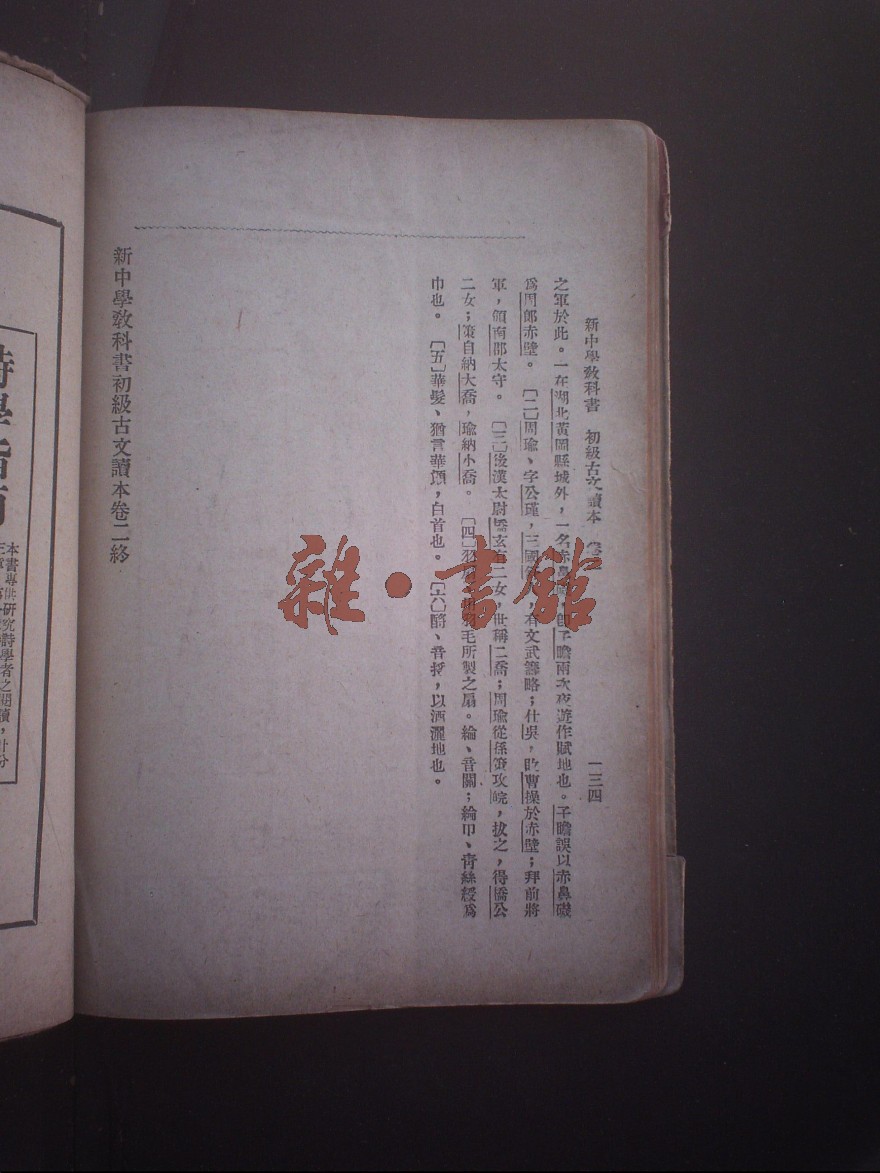 新中學敎科書 初級古文讀本 一三四
之軍於此。一在湖北黃岡縣城外，一名赤鼻，卽子瞻兩次夜遊作賦地也。子瞻誤以赤鼻磯
爲周郎赤壁。 〔二〕周瑜、字公瑾，三國，有文武籌略；仕吳，敗曹操於赤壁；拜前將
軍，領南郡太守。 〔三〕後漢太尉橋玄有二女，世稱二喬；周瑜從孫策攻皖，拔之，得橋公
二女；策自納大喬，瑜納小喬。 〔四〕羽毛所製之扇。綸、音關；綸巾、靑絲綬爲
巾也。 〔五〕華髮、猶言華顚，白首也。 〔六〕酹、音，以酒灑地也。
新中學敎科書初級古文讀本卷二終
本書專供研究詩學者之閱讀，計分
雜·書館